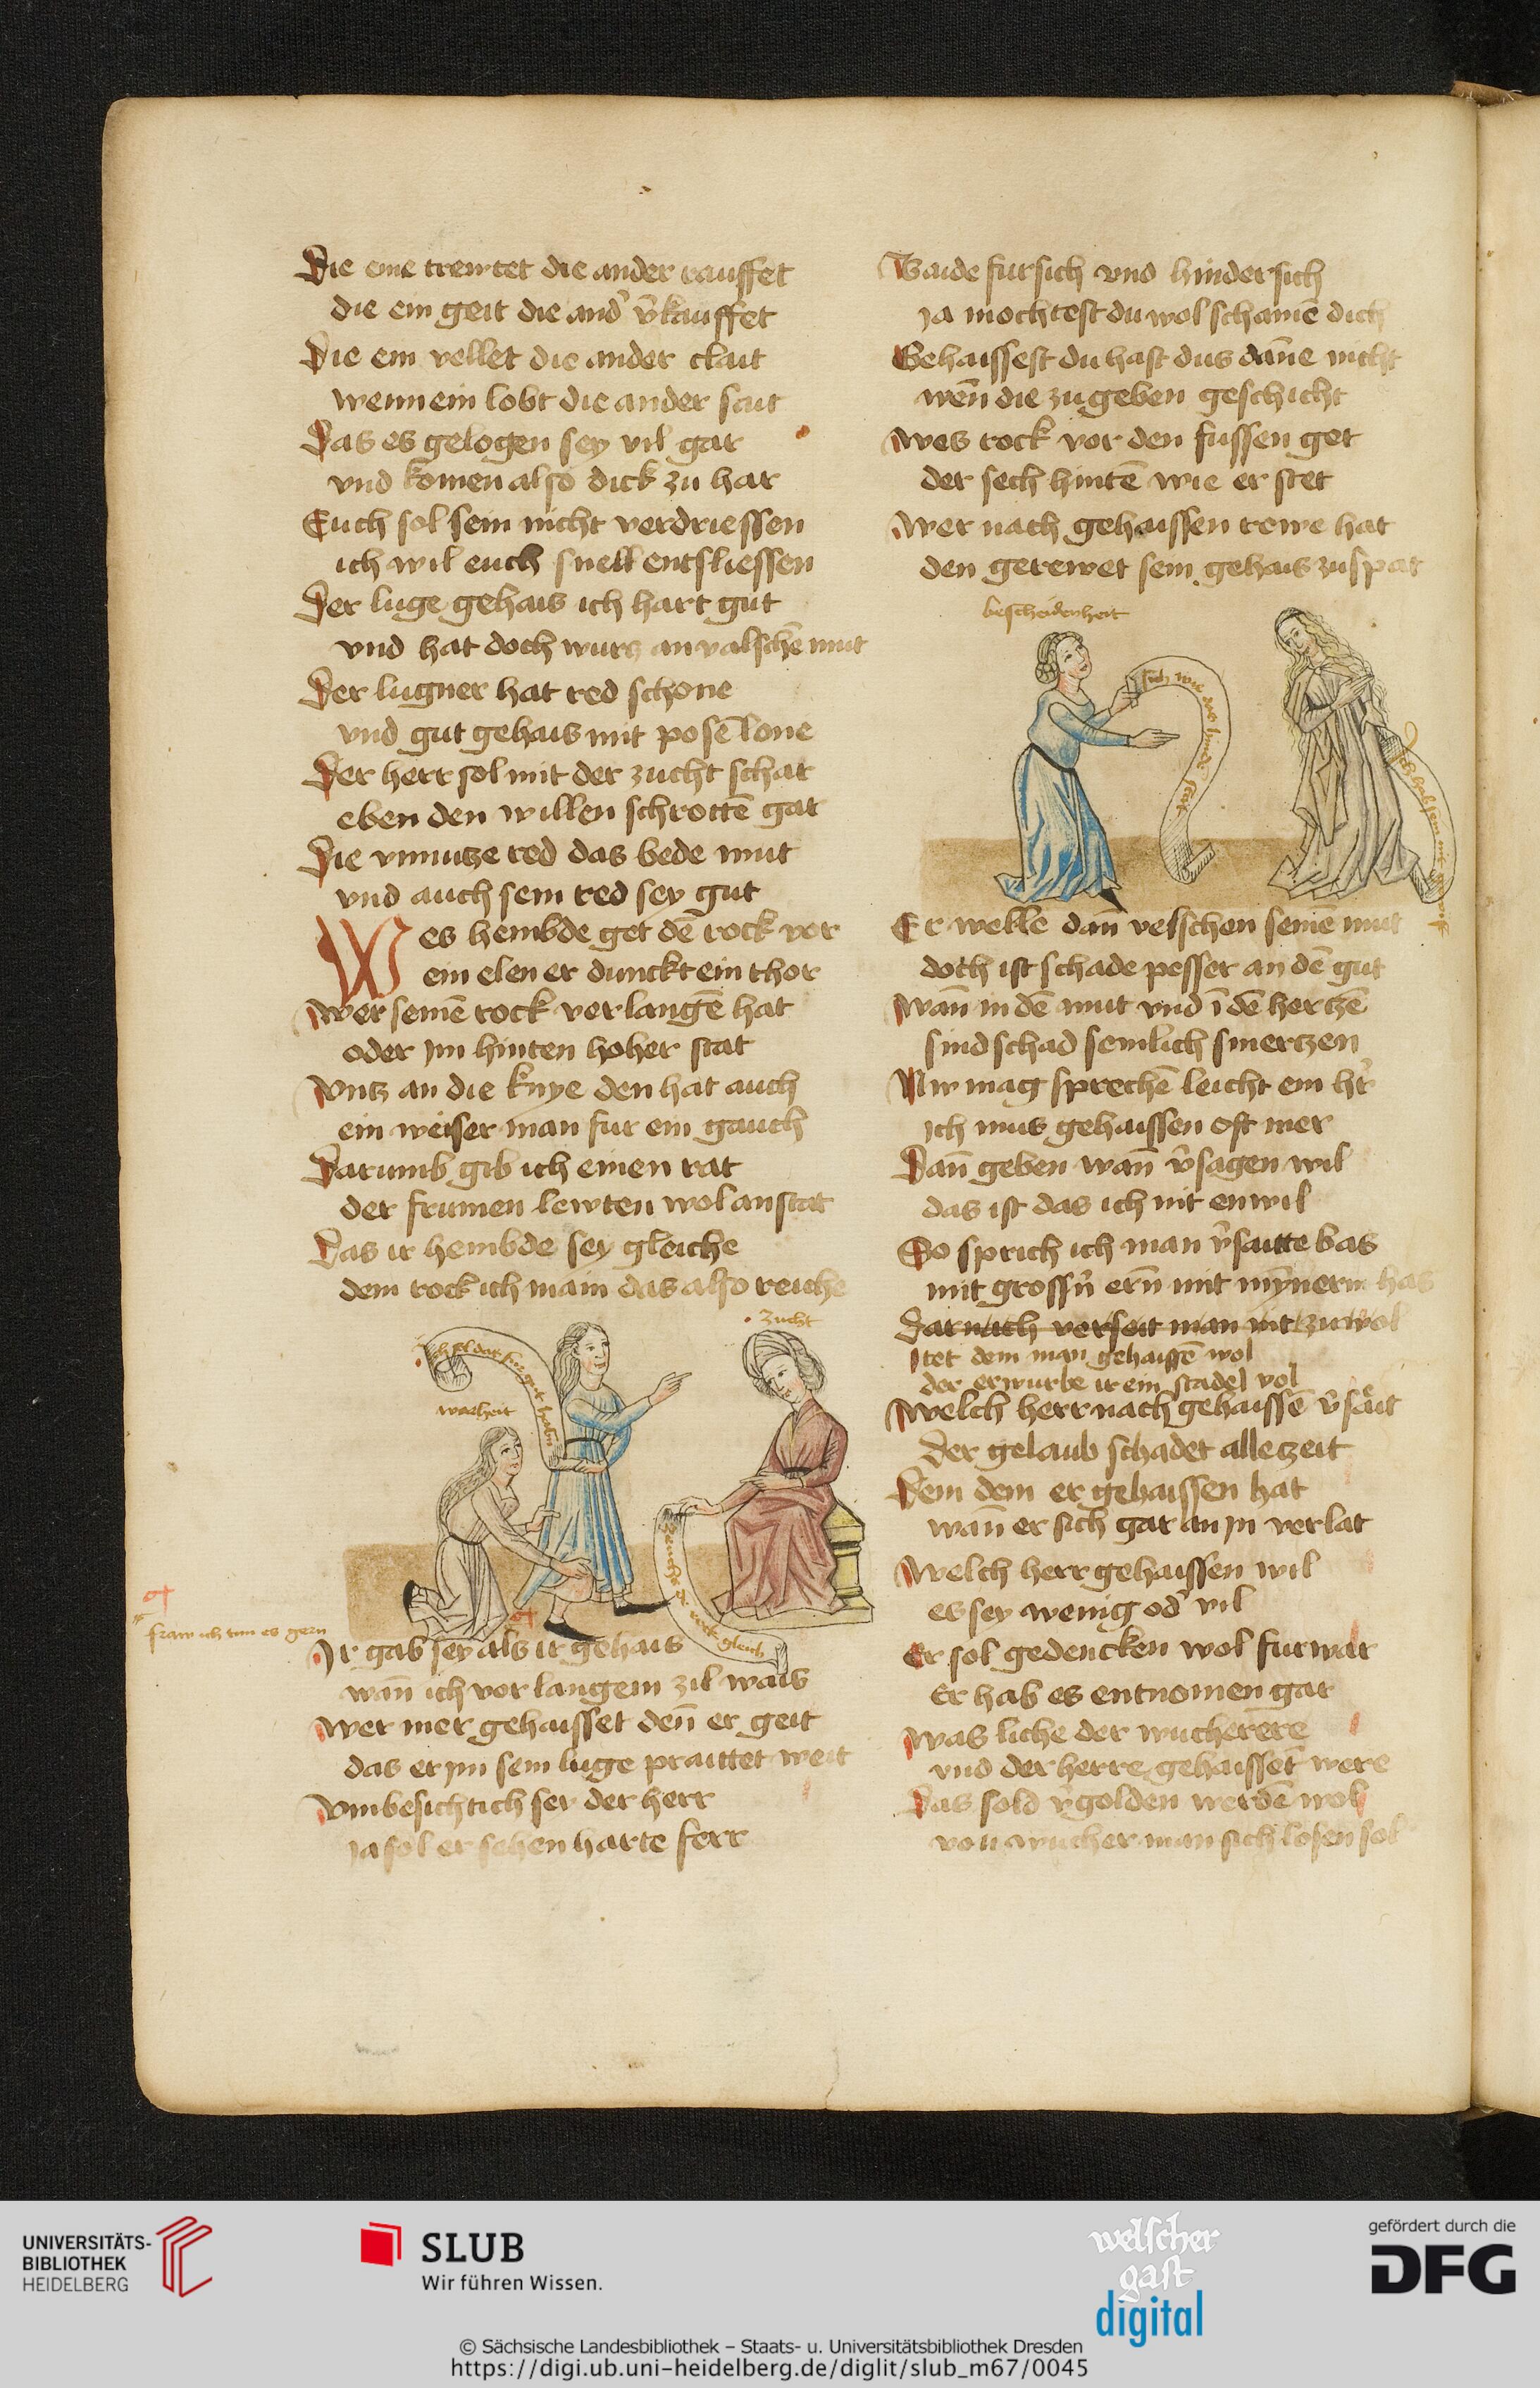 Die eine trewtet die ander rauffet
die ein geit die and̾ v̾kauffet
Die ein vellet die ander clait
wenn ein lobt die ander scut
Das es gelogen sey vil gar
vnd komen also dick zu har
Euch sol sein nicht verdriessen
ich wil euch snell entsliessen
Der luge gehais ich hart gut
vnd hat doch wurz an valschē mut
Der lugner hat red schone
vnd gut gehais mit posē lone
Der herr sol mit der zucht schar
eben den willen schrottē gar
Die vnnutze red das bede mut
vnd auch sein red sey gut
Wes hembde get dē rock vor
ein elen er dunckt ein thor
Wer seinē rock verlangē hat
oder jm hinten hoher stat
Vntz an die knye den hat auch
ein weiser man fur ein gauch
Darumb gib ich einen rat
der frumen lewten wol anstat
Das ir hembde sey gleiche
dem rock ich main das also reiche
zucht
warheit
fraw ich tun es gern
Ir gab sey als ir gehais
wañ ich vor langem zil wais
Wer mer gehaisset deñ er geit
das er jm sein luge praittet weit
Vmbesichtich sey der herr
ja sol er sehen harte ferr
Baide fursich vnd hindersich
ja mochtest du wol schamē dich
Gehaissest du hast dus dāne nicht
weñ die zu geben geschicht
Wes rock vor den fussen get
der sech hintē wie er stet
Wer nach gehaissen rewe hat
den gerewet sein gehais zu spat
bescheidenheit
sich wie das hind̾ stet
Er welle dañ velschen seine mut
doch ist schade pesser an dē gut
Wañ in dē mut vnd ī dē hertzē
sind schad semlich smertzen
Nw mag sprechē leicht ein hr̾
jch mus gehaissen oft mer
Dañ geben wañ v̾sagen wil
das ist das ich nit enwil
So sprich ich man v̾saitte bas
mit grossn̾ ern̄ mit mȳnerm has
Darnach verseit man nit zu wol
tet dem man gehaissē wol
der erwurbe ir ein stadel vol
Welch herr nach gehaissē v̾sait
Der gelaub schadet alle zeit
Dem dem er gehaissen hat
wañ er sich gar an jn verlat
Welch herr gehaissen wil
es sey wenig od̾ vil
Er sol gedencken wol furwar
Er hab es entnomen gar
Was liche der wucherere
vnd der herre gehaissēt were
Das sold v̾golden werdē wol
von wucher man sich losen sol
UNIVERSITÄTS-
BIBLIOTHEK
HEIDELBERG
SLUB
Wir führen Wissen.
welscher
gast
digital
gefördert durch die
DFG
© Sächsische Landesbibliothek – Staats- u. Universitätsbibliothek Dresden
https://digi.ub.uni-heidelberg.de/diglit/slub_m67/0045